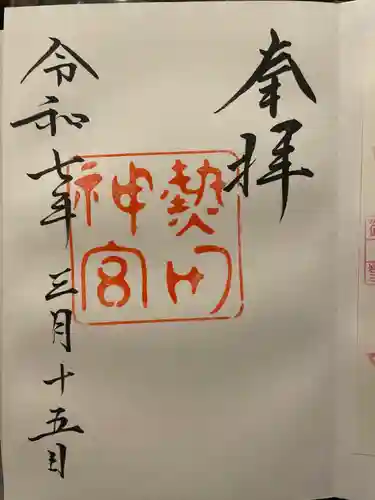 奉拝
熱田
神宮
令和七年三月十五日